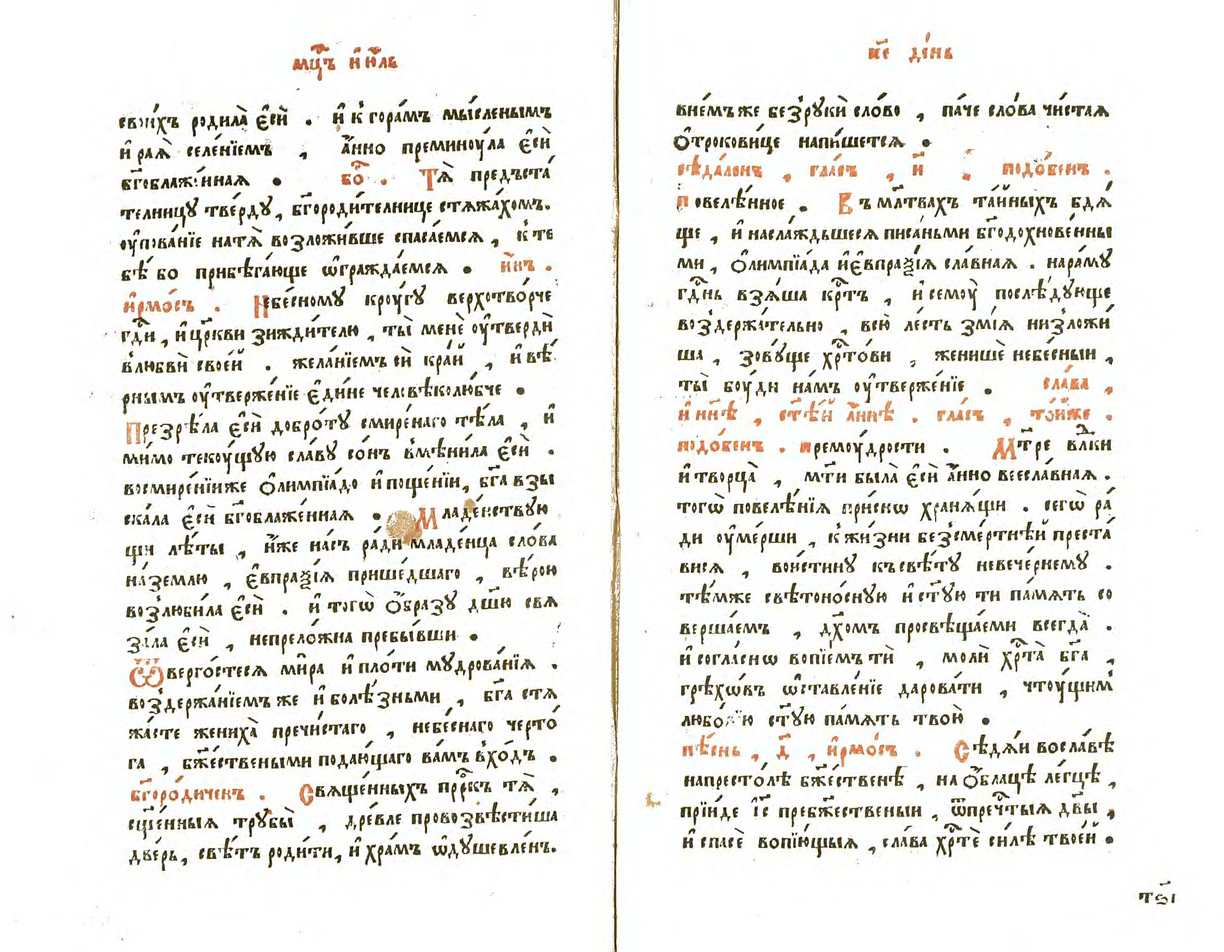 мцⷭ҇ъ и҆ ю҆́ль
свои́хъ родила̀ є҆сѝ . и҆ к̾ гора́мъ мы́сленымъ
и҆ рая̀ селе́нїемъ , а҆́нно преминꙋ́ла є҆сѝ
бг҃облаже́нная . бо҇ . Тѧ̀ предъста́
телницꙋ тве́рдꙋ, бг҃ороди́телнице стѧжа́хомъ.
ᲂу҆пова́нїе натѧ̀ возложи́вше спаса́емсѧ , к̾ те
бѣ́ бо прибѣга́юще ѡ҆гражда́емсѧ . и҆́нъ .
і҆рмо́съ . Небе́сномꙋ крꙋ́гꙋ верхотво́рче
гд҇и , и҆ цр҃кви зижди́телю , ты̀ менѐ ᲂу҆твердѝ
влюбвѝ свое́й . жела́нїемъ сѝ кра́й , и҆ вѣ́
рнымъ ᲂу҆твержде́нїе є҆ди́не человѣколю́бче .
Презрѣ́ла є҆сѝ добро́тꙋ смире́наго тѣ́ла , и҆
мимо текꙋ́щꙋю сла́вꙋ со́нъ в̾мѣни́ла є҆сѝ .
восмире́нїиже ѻ҆лимпїа́до и҆ поще́нїи, бг҃а взы
ска́ла є҆сѝ бг҃облаже́нная . Младе́нствꙋю
щи лѣ́ты , и҆́же на́съ ра́ди младе́нца сло́ва
на́землю , є҆впраѯі́ѧ прише́дшаго , вѣ́рою
возлюби́ла є҆сѝ . и҆ тогѡ̀ ѻ҆́бразꙋ дш҃ю свѧ
за́ла є҆сѝ , непрело́жна пребы́вши .
Ѿверго́стесѧ ми́ра и҆ пло́ти мꙋдрова́нїѧ .
воздержа́нїемъ же и҆ болѣ́зными , бг҃а стѧ
жа́сте жениха̀ пречи́стаго , небе́снаго черто́
га , бж҃е́ствеными подаю́щаго ва́мъ в̾хо́дъ .
бг҃оро́диченъ . Свѧще́нныхъ прⷪ҇ркъ тѧ̀ ,
сщ҃е́нныѧ трꙋбы̀ , дре́вле провозвѣсти́ша
две́рь, свѣ́тъ роди́ти, и҆ хра́мъ ѡ҆дꙋшевле́нъ.
к҃е де́нь
вне́мъже безрꙋкѝ сло́во , па́че сло́ва чи́стаѧ
ѻ҆трокови́це напи́шетсѧ .
сѣда́ленъ , гла́съ , и҃ , подо́бенъ .
повелѣ́нное . Въ мл҃твахъ та́йныхъ бдѧ́
ще , и҆ наслажда́ьшесѧ писа́ньми бг҃одохнове́нны
ми , ѻ҆лимпїа́да и҆є҆впраѯі́ѧ сла́внаѧ . нара́мꙋ
гдⷭ҇нь взѧ́ша крⷭ҇тъ , и҆ семꙋ̀ послѣ́дꙋюще
воздержа́тельно , всю̀ ле́сть змі́ѧ низложи́
ша , зовꙋ́ще хрⷭ҇то́ви , женишѐ небе́сныи ,
ты̀ бꙋ́ди на́мъ ᲂу҆твержде́нїе . сла́ва ,
и҆ нн҃ѣ , ст҃ѣ́й а҆́ннѣ . гла́съ , то́йже .
подо́бенъ . премꙋ́дрости . Мт҃ре влⷣки
и҆ творца̀ , мт҃и была̀ є҆сѝ а҆́нно всесла́внаѧ .
тогѡ̀ повелѣ́нїѧ при́снѡ хранѧ́щи . сегѡ̀ ра́
ди ᲂу҆ме́рши , к̾ жи́зни безсме́ртнѣй преста́
висѧ , вои́стинꙋ къ свѣ́тꙋ невече́рнемꙋ .
тѣ́мже свѣтоно́снꙋю и҆ ст҃ꙋ́ю ти па́мѧть со
верша́емъ , дх҃омъ просвѣща́еми всегда̀ .
и҆ согла́снѡ вопїе́мъ тѝ , молѝ хрⷭ҇та̀ бг҃а ,
грѣхѡ́въ ѡ҆ставле́нїе дарова́ти , чтꙋ́щим̾
любо́вїю ст҃ꙋ́ю па́мѧть твою̀ .
пѣ́снь , д҃ , і҆рмо́съ . Сѣдѧ́й вославѣ
напресто́лѣ бж҃е́ственѣ , на ѻ҆́блацѣ ле́гцѣ ,
прїи́де і҆с҃ пребж҃е́ственыи , ѿпречⷭ҇тыѧ дв҃ы ,
и҆ спасѐ вопїю́щыѧ , сла́ва хрⷭ҇тѐ си́лѣ твое́й .
тѕ҃і